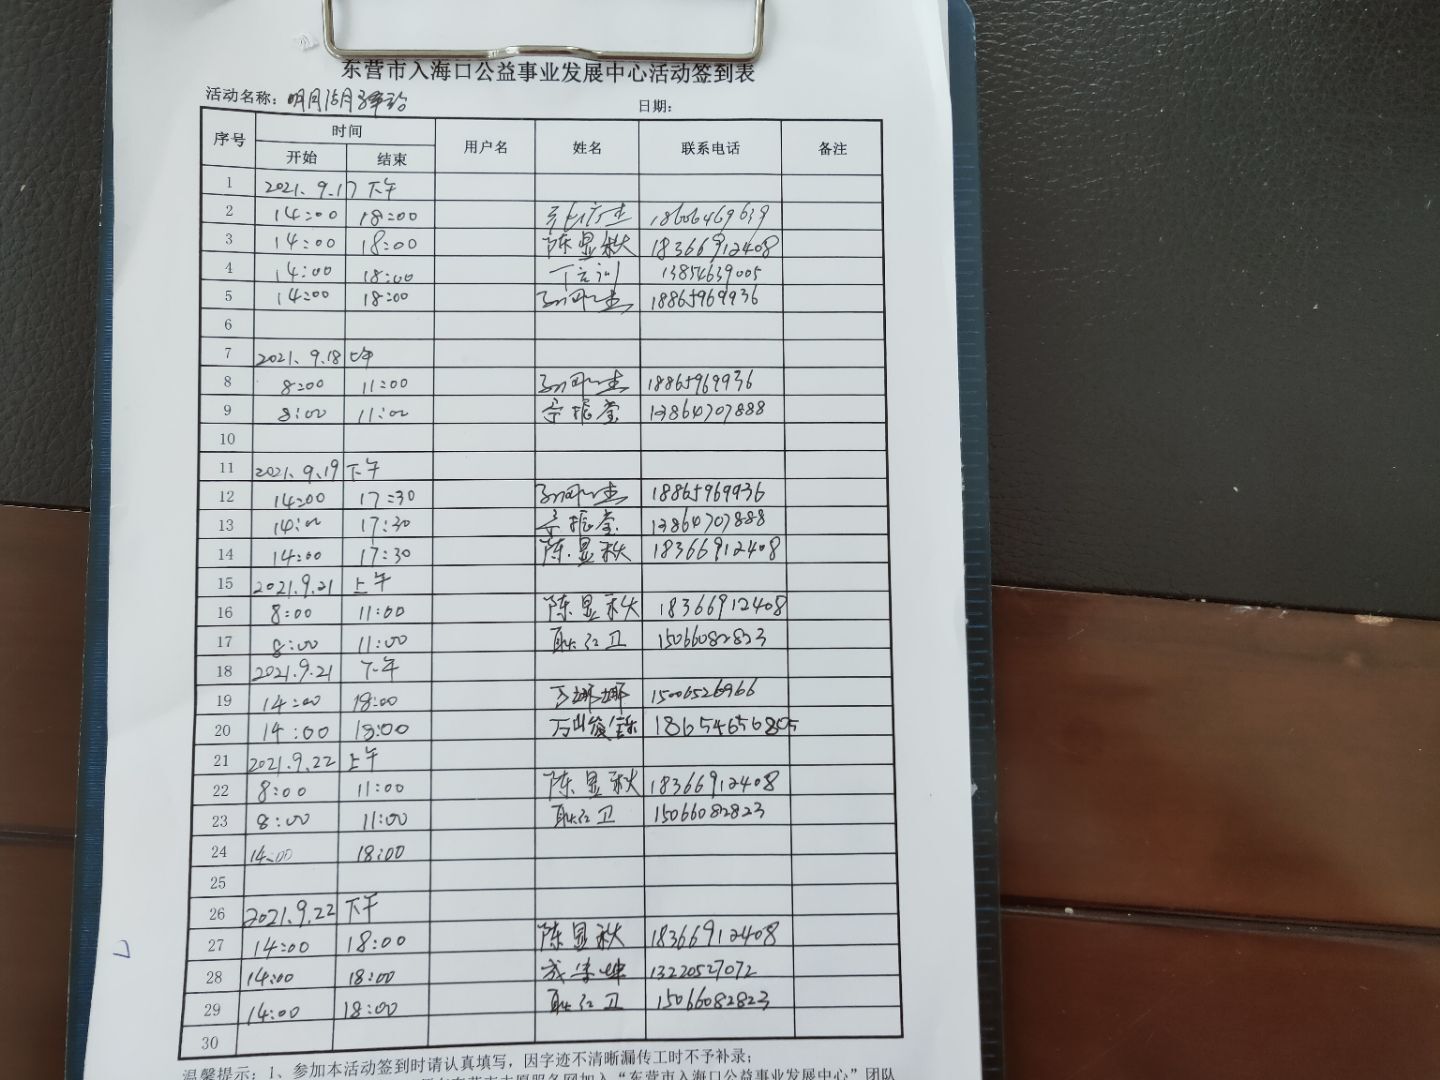 东营市入海口公益事业发展中心活动签到表
活动名称：明月
日期：
序号 时间 用户名 姓名 联系电话 备注
开始 结束
1 2021.9.17 下午
2 14:00 18:00 18606469639
3 14:00 18:00 陈显秋 18366912408
4 14:00 18:00 13854639005
5 14:00 18:00 18865969936
6
7 2021.9.18 上午
8 8:00 11:00 18865969936
9 8:00 11:00 李振堂 13864707888
10
11 2021.9.19 下午
12 14:00 17:30 18865969936
13 14:00 17:30 李振堂 13864707888
14 14:00 17:30 陈显秋 18366912408
15 2021.9.21 上午
16 8:00 11:00 陈显秋 18366912408
17 8:00 11:00 耿红卫 15066082823
18 2021.9.21 下午
19 14:00 18:00 娜娜 15006526966
20 14:00 18:00 18654656805
21 2021.9.22 上午
22 8:00 11:00 陈显秋 18366912408
23 8:00 11:00 耿红卫 15066082823
24 14:00 18:00
25
26 2021.9.22 下午
27 14:00 18:00 陈显秋 18366912408
28 14:00 18:00 13220527072
29 14:00 18:00 耿红卫 15066082823
30
温馨提示：1、参加本活动签到时请认真填写，因字迹不清晰漏传工时不予补录；
东营市志愿服务网加入“东营市入海口公益事业发展中心”团队